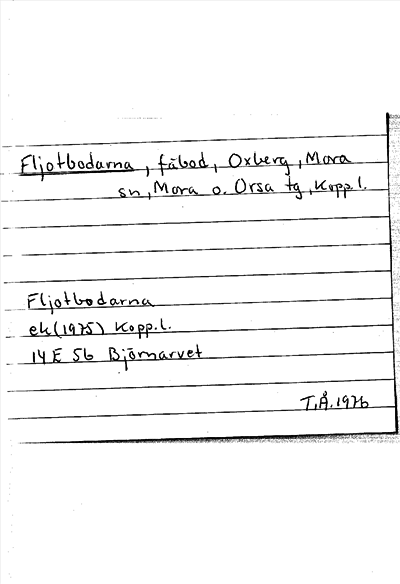 Fljotbodarna, fäbod, Oxberg, Mora
sn, Mora o. Orsa tg, Kopp.l.
Fljotbodarna
ek (1975) Kopp.l.
14E 5b Björnarvet
T.Å. 1976